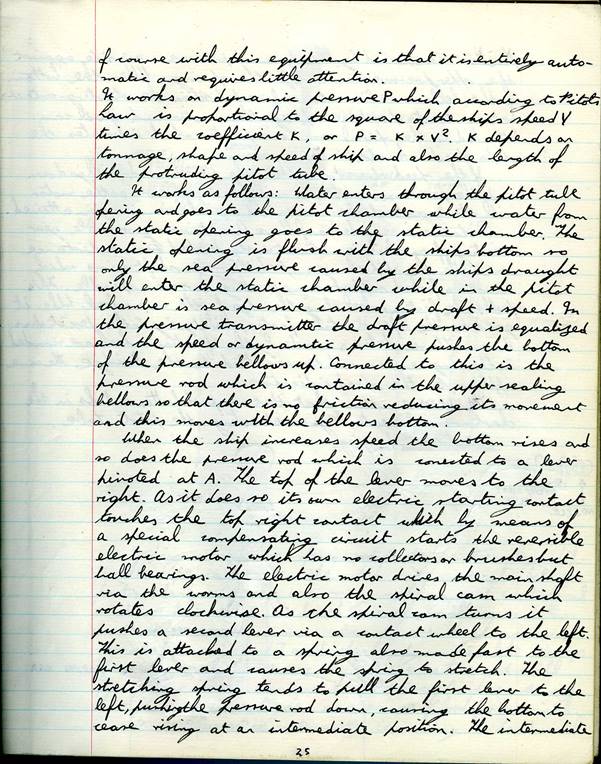 of course with this equipment is that it is entirely auto-
matic and requires little attention.
It works on dynamic pressure P which according to Pitots
Law is proportional to the square of the ships speed V
times the coefficient K, or P = K x V². K depends on
tonnage, shape and speed of ship and also the length of
the protruding pitot tube.
It works as follows: Water enters through the pitot tube
opening and goes to the pitot chamber while water from
the static opening goes to the static chamber. The
static opening is flush with the ships bottom so
only the sea pressure caused by the ships draught
will enter the static chamber while in the pitot
chamber is sea pressure caused by draft + speed. In
the pressure transmitter the draft pressure is equalized
and the speed or dynamtic pressure pushes the bottom
of the pressure bellows up. Connected to this is the
pressure rod which is contained in the upper sealing
bellows so that there is no friction reducing its movement
and this moves with the bellows bottom.
When the ship increases speed the bottom rises and
so does the pressure rod which is conected to a lever
pivoted at A. The top of the lever moves to the
right. As it does so its own electric starting contact
touches the top right contact which by means of
a special compensating circuit starts the reversible
electric motor which has no collectors or brushes but
ball bearings. The electric motor drives, the main shaft
via the worms and also the spiral cam which
rotates clockwise. As the spiral cam turns it
pushes a second lever via a contact wheel to the left.
This is attached to a spring also made fast to the
first lever and causes the spring to stretch. The
stretching spring tends to pull the first lever to the
left, pushing the pressure rod down, causing the bottom to
cease rising at an intermediate position. The intermediate
25